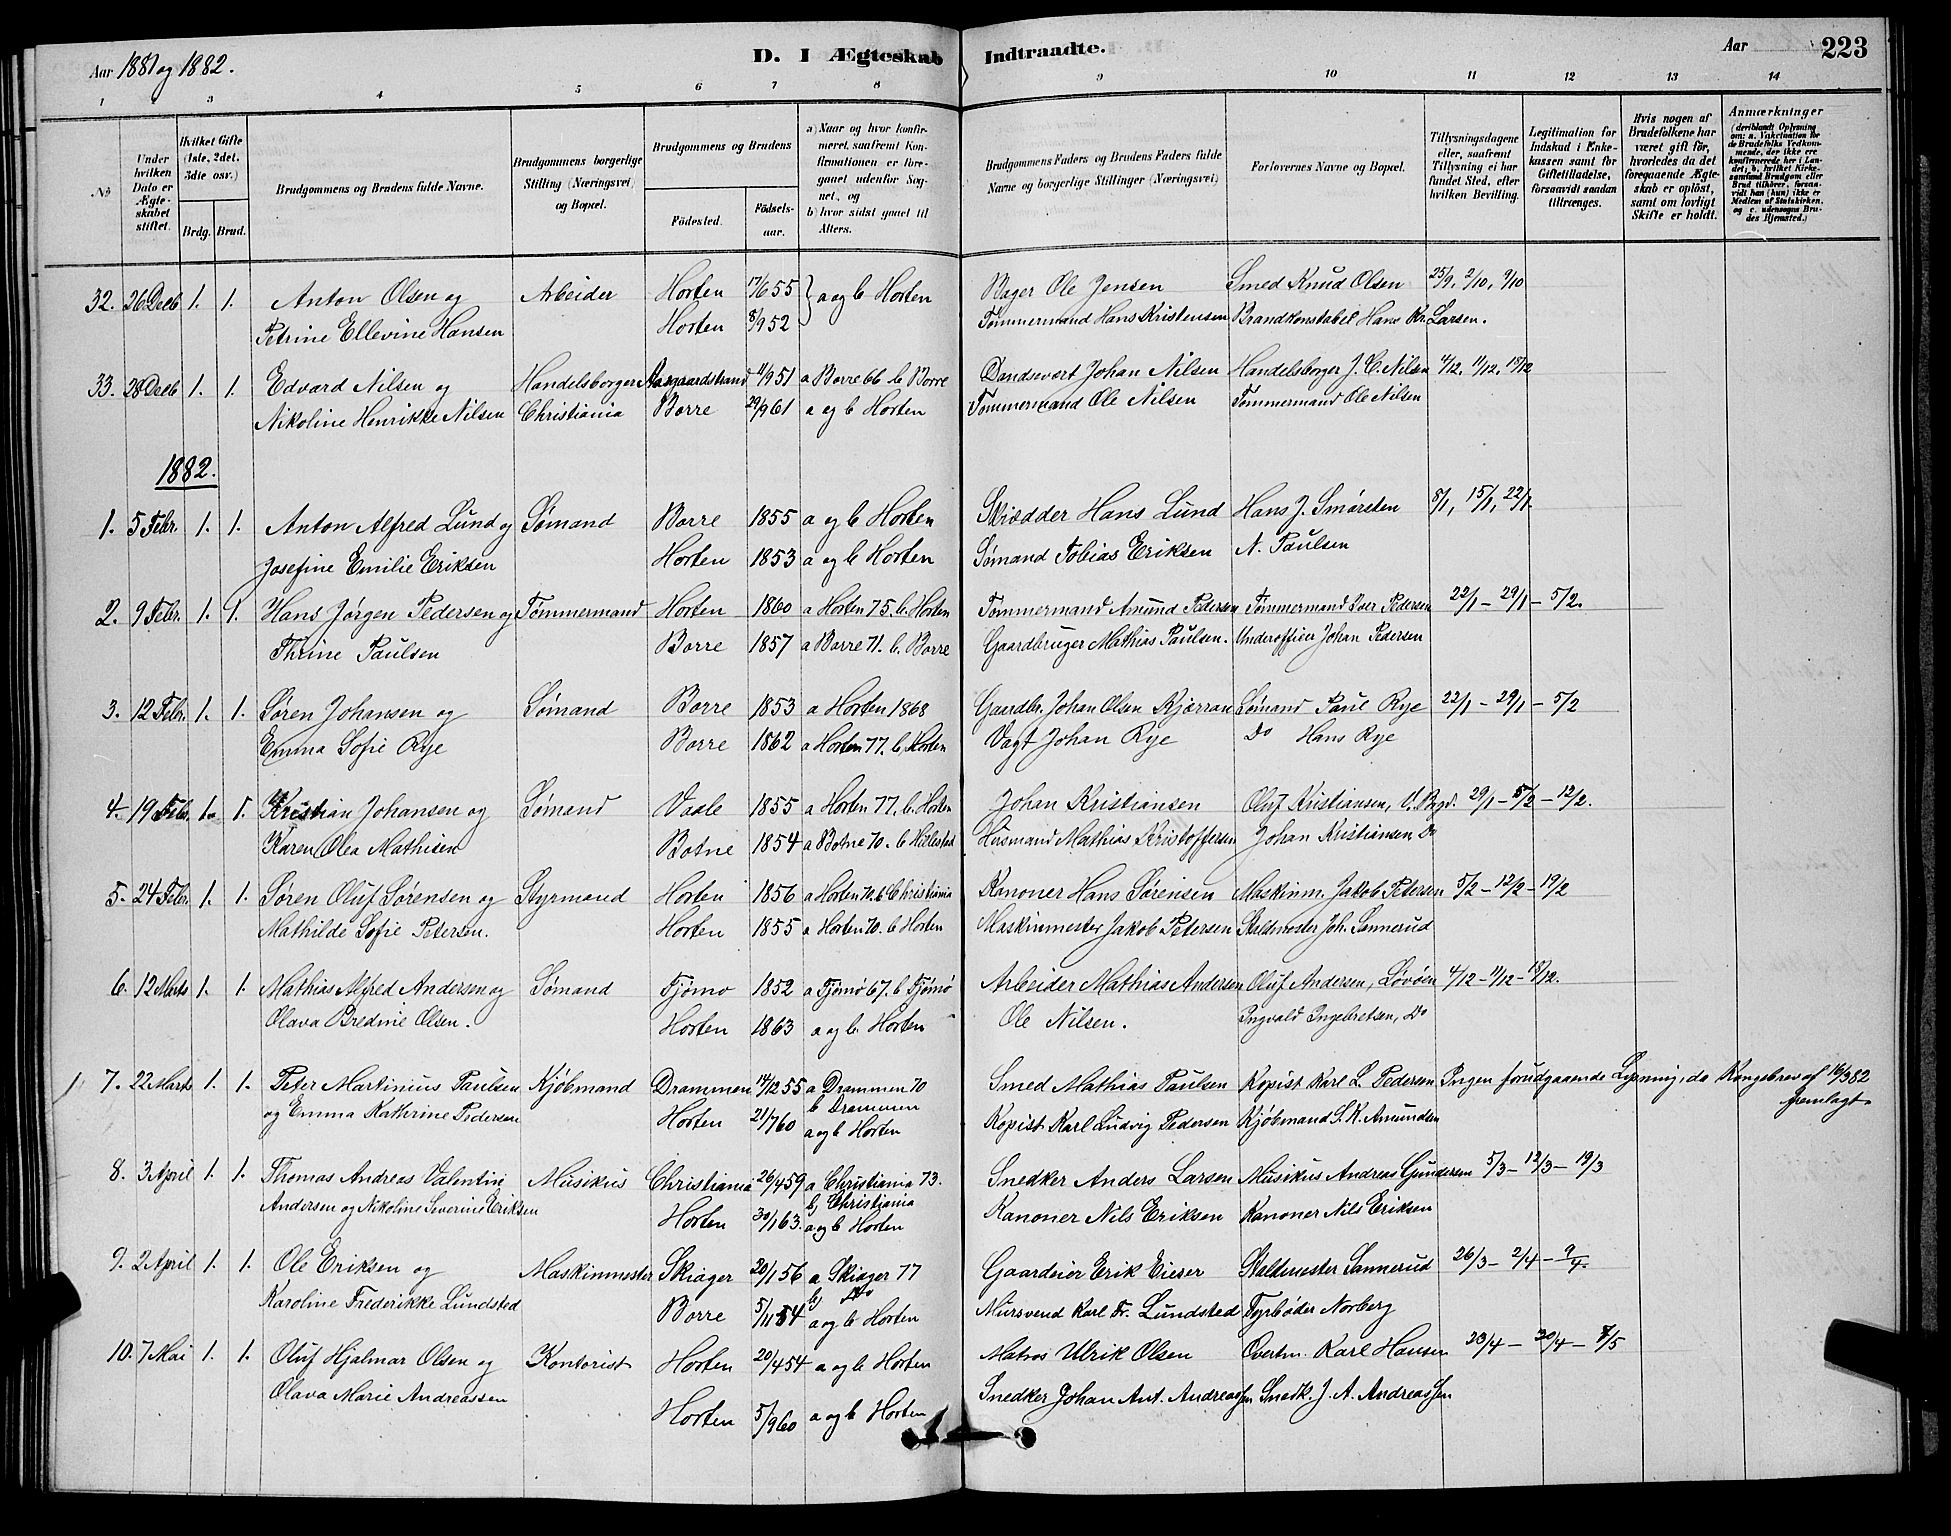 Aar 1881 og 1882.
D. I Ægteskab Indtraadte.
Aar 223
1 2 3 4 5 6 7 8 9 10 11 12 13 14
No
Under hvilken Dato er Ægteskabet stiftet.
Hvilket Gifte (1ste, 2det, 3die osv.)
Brdg. Brud.
Brudgommens og Brudens fulde Navne.
Brudgommens borgerlige Stilling (Næringsvei) og Bopæl.
Brudgommens og Brudens
Födested. Födselsaar.
a) Naar og hvor konfirmeret, saafremt Konfirmationen er foregaaet udenfor Sognet, og
b) hvor sidst gaaet til Alters.
Brudgommens Faders og Brudens Faders fulde Navne og borgerlige Stillinger (Næringsvei)
Forlovernes Navne og Bopæl.
Tillysningsdagene eller, saafremt Tillysning ei har fundet Sted, efter hvilken Bevilling.
Legitimation for Indskud i Enkekassen samt for Giftetilladelse, forsaavidt saadan tiltrænges.
Hvis nogen af Brudefolkene har været gift før, hvorledes da det foregaaende Ægteskab er oplöst, samt om lovligt Skifte er holdt.
Anmærkninger (deriblandt Oplysning om: a. Vakcination for de Brudefolks Vedkommende, der ikke ere konfirmerede her i Landet; b. hvilket Kirkesamfund Brudgom eller Brud tilhörer, forsaavidt han (hun) ikke er Medlem af Statskirken, og c. udensogns Brudes Hjemsted.)
32. 26 Decb 1. 1. Anton Olsen og Arbeider Horten 17/6 55 a og b Horten Bager Ole Jensen Smed Knud Olsen 25/9, 2/10, 9/10
Petrine Ellevine Hansen Horten 8/9 52 Tømmermand Hans Kristensen Brandkonstabel Hans Kr. Larsen.
33. 28 Decb 1. 1. Edvard Nilsen og Handelsborger Aasgaardstrand 11/9 51 a Borre 66 b Borre Dandsevert Johan Nilsen Handelsborger J. C. Nilsen 4/12. 11/12. 18/12
Nikoline Henrikke Nilsen Christiania Borre 29/9 61 a og b Horten Tømmermand Ole Nilsen Tømmermand Ole Nilsen
1882.
1. 5 Febr. 1. 1. Anton Alfred Lund og Sømand Borre 1855 a og b Horten Skrædder Hans Lund Hans J. Smørsten 8/1, 15/1, 22/1.
Josefine Emilie Eriksen Horten 1853 a og b Horten Sømand Tobias Eriksen N. Paulsen
2. 9 Febr. 1. 1. Hans Jørgen Pedersen og Tømmermand Horten 1860 a Horten 75. b. Horten Tømmermand Amund Pedersen Tømmermand Iver Pedersen 22/1 - 29/1 - 5/2.
Thrine Paulsen Borre 1857 a Borre 71. b. Borre Gaardbruger Mathias Paulsen. Underofficer Johan Pedersen
3. 12 Febr. 1. 1. Søren Johansen og Sømand Borre 1853 a Horten 1868 Gaardbr. Johan Olsen Kjærran Sømand Paul Rye 22/1 - 29/1 - 5/2
Emma Sofie Rye Borre 1862 a Horten 77. b. Horten Vagt Johan Rye Do Hans Rye
4. 19 Febr. 1. 1. Kristian Johansen og Sømand Vaale 1855 a Horten 77. b. Horten Johan Kristiansen Oluf Kristiansen, V. Bygd. 29/1 - 5/2 - 12/2.
Karen Olea Mathisen Botne 1854 a Botne 70. b Hillestad Husmand Mathias Kristoffersen Johan Kristiansen Do
5. 24 Febr. 1. 1. Søren Oluf Sørensen og Styrmand Horten 1856 a Horten 70. b Christiania Kanoner Hans Sørensen Maskinm. Jakob Petersen 5/2 - 12/2 - 19/2
Mathilde Sofie Petersen. Horten 1855 a Horten 70. b Horten Maskinmester Jakob Petersen Staldmester Joh. Sannerud
6. 12 Marts 1. 1. Mathias Alfred Andersen og Sømand Tjømø 1852 a Tjømø 67. b Tjømø Arbeider Mathias Andersen Oluf Andersen, Løvøen 4/12 - 11/12 - 18/12.
Olava Bredine Olsen. Horten 1863 a og b. Horten Ole Nilsen. Ingvald Ingebretsen, Do
7. 22 Marts 1. 1. Peter Martinius Paulsen Kjøbmand Drammen 14/12 55 a Drammen 70 b Drammen Smed Mathias Paulsen Kopist Karl L. Pedersen Ingen forudgaaende Lysning, da Kongebrev af 16/3 82 fremlagt.
og Emma Kathrine Pedersen Horten 21/7 60 a og b Horten Kopist Karl Ludvig Pedersen Kjøbmand S. K. Amundsen
8. 3 April 1. 1. Thomas Andreas Valentin Musikus Christiania 26/4 59 a Christiania 73. b) Christiania Snedker Anders Larsen Musikus Andreas Gundersen 5/3 - 12/3 - 19/3
Andersen og Nikoline Severine Eriksen Horten 30/1 63. a og b Horten Kanoner Nils Eriksen Kanoner Nils Eriksen
9. 2 April 1. 1. Ole Eriksen og Maskinmester Skiager 20/1 56 a Skiager 77 b) Do Gaardeier Erik Eieser Staldmester Sannerud 26/3 - 2/4 - 9/4.
Karoline Frederikke Lundsted Borre 5/11 54 a og b Horten Mursvend Karl Fr. Lundsted Fyrbøder Norberg
10. 7 Mai 1. 1. Oluf Hjalmar Olsen og Kontorist Horten 20/4 54 a og b Horten Matros Ulrik Olsen Overtm. Karl Hansen 23/4 - 30/4 - 7/5
Olava Marie Andreassen Horten 5/9 60 a og b Horten Snedker Johan Ant. Andreassen Snedk. J. A. Andreassen